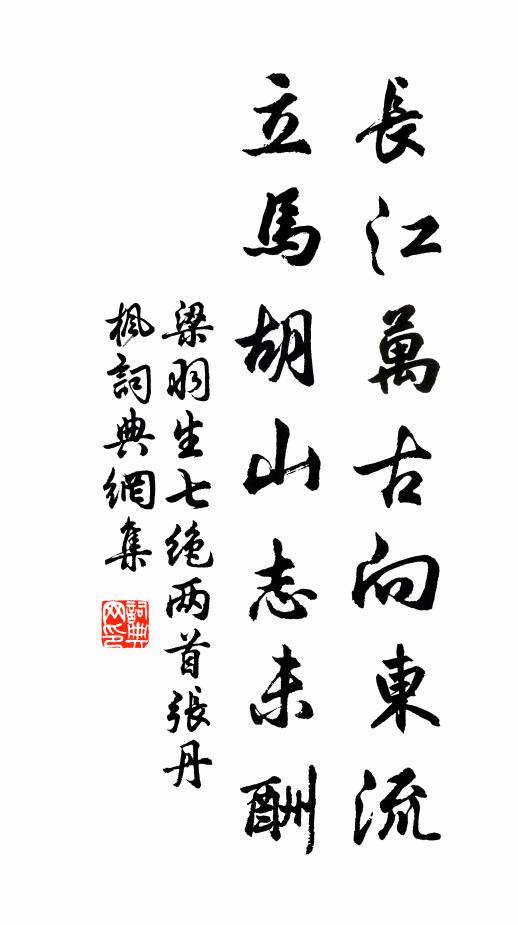 長江萬古向東流
立馬胡山志未酬
梁羽生七绝两首張丹
楓詞典網集
詞典網印